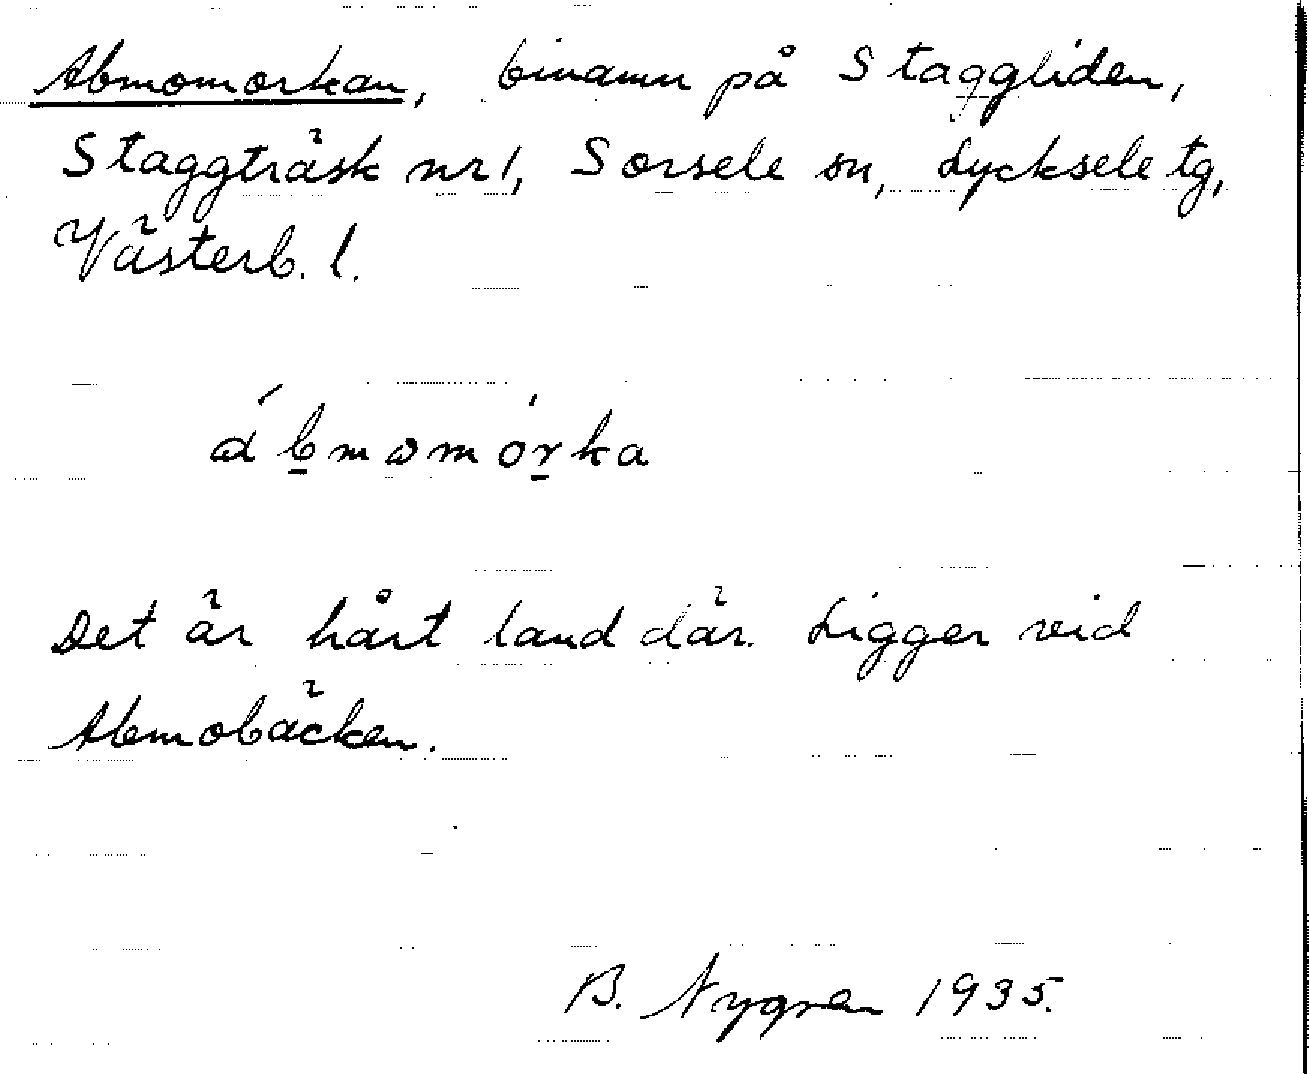 Abmomorkan, binamn på Staggliden,
Staggträsk nr 1, Sorsele sn, Lycksele tg,
Västerb. l.
áb̲momór̲ka
Det är hårt land där. Ligger vid
Abmobäcken.
B. Nygren 1935.